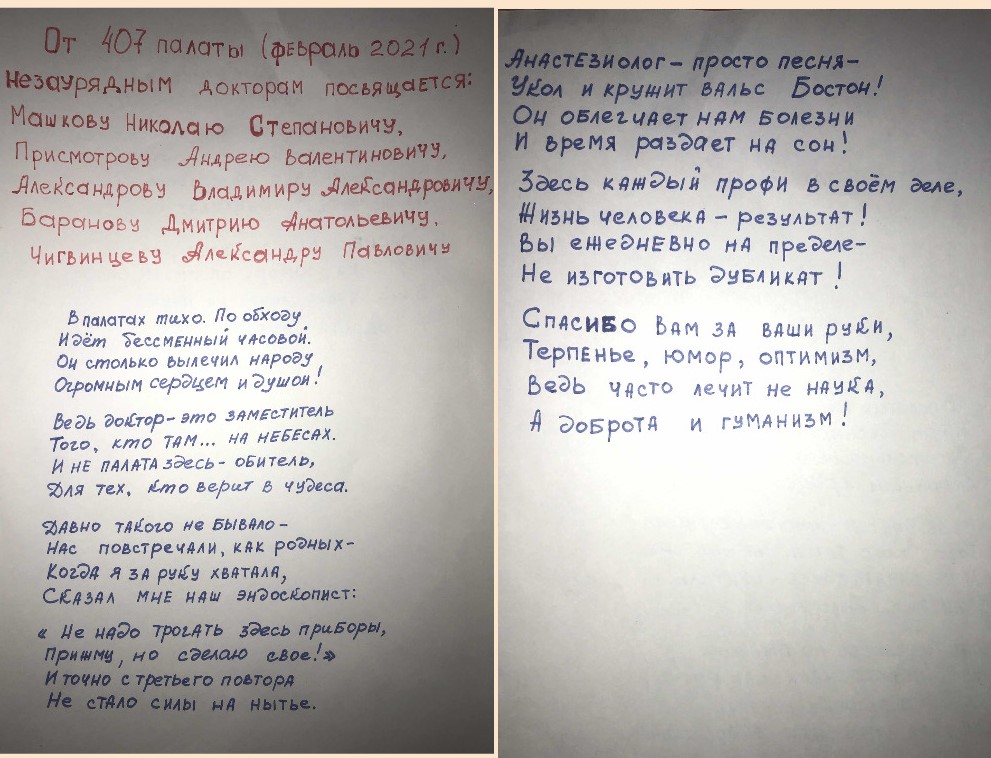 От 407 палаты (февраль 2021 г.)
Незаурядным докторам посвящается:
Машкову Николаю Степановичу,
Присмотрову Андрею Валентиновичу,
Александрову Владимиру Александровичу,
Баранову Дмитрию Анатольевичу,
Чигвинцеву Александру Павловичу
В палатах тихо. По обходу
Идёт бессменный часовой.
Он столько вылечил народу
Огромным сердцем и душой!
Ведь доктор - это заместитель
Того, кто там... на небесах.
И не палата здесь - обитель,
Для тех, кто верит в чудеса.
Давно такого не бывало -
Нас повстречали, как родных -
Когда я за руку хватала,
Сказал мне наш эндоскопист:
« Не надо трогать здесь приборы,
Пришму, но сделаю свое!»
И точно с третьего повтора
Не стало силы на нытье.
Анастезиолог - просто песня -
Укол и кружит вальс Бостон!
Он облегчает нам болезни
И время раздает на сон!
Здесь каждый профи в своём деле,
Жизнь человека - результат!
Вы ежедневно на пределе -
Не изготовить дубликат!
Спасибо вам за ваши руки,
Терпенье, юмор, оптимизм,
Ведь часто лечит не наука,
А доброта и гуманизм!